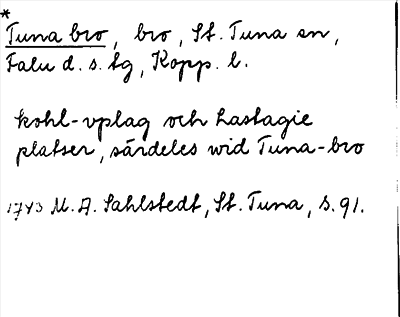 *
Tuna bro, bro, St. Tuna sn,
Falu d. s. tg, Kopp. l.
kohl-vplag och hastagie
platser, särdeles wid Tuna-bro
1743 M. A. Sahlstedt, St. Tuna, s. 91.